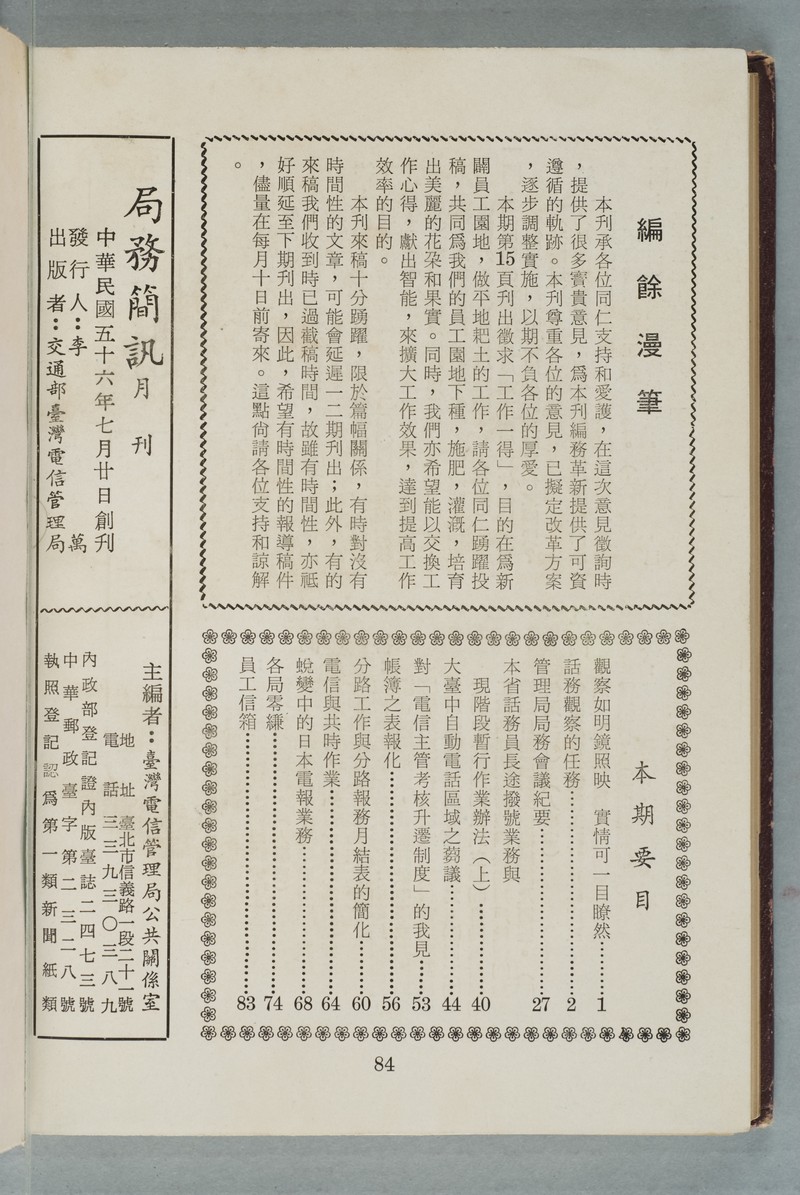 編餘漫筆
本刊承各位同仁支持和愛護，在這次意見徵詢時
，提供了很多寶貴意見，為本刊編務革新提供了可資
遵循的軌跡。本刊尊重各位的意見，已擬定改革方案
，逐步調整實施，以期不負各位的厚愛。
本期第15頁刊出徵求「工作一得」，目的在為新
闢員工園地，做平地耙土的工作，請各位同仁踴躍投
稿，共同為我們的員工園地下種，施肥，灌漑，培育
出美麗的花朶和果實。同時，我們亦希望能以交換工
作心得，獻出智能，來擴大工作效果，達到提高工作
效率的目的。
本刊來稿十分踴躍，限於篇幅關係，有時對沒有
時間性的文章，可能會延遲一二期刊出；此外，有的
來稿我們收到時已過截稿時間，故雖有時間性，亦祗
好順延至下期刊出，因此，希望有時間性的報導稿件
，儘量在每月十日前寄來。這點尙請各位支持和諒解
。
本期要目
觀察如明鏡照映　實情可一目瞭然…………1
話務觀察的任務…………2
管理局局務會議紀要…………27
本省話務員長途撥號業務與
現階段暫行作業辦法（上）…………40
大臺中自動電話區域之芻議…………44
對「電信主管考核升遷制度」的我見…………53
帳簿之表報化…………56
分路工作與分路報務月結表的簡化…………60
電信與共時作業…………64
蛻變中的日本電報業務…………68
各局零縑…………74
員工信箱…………83
局務簡訊月刊
中華民國五十六年七月廿日創刊
發行人：李萬
出版者：交通部臺灣電信管理局
主編者：臺灣電信管理局公共關係室
地址臺北市信義路一段二十一號
電話三三九三〇三八九
內政部登記證內版臺誌二四七三號
中華郵政臺字第二三二八號
執照登記認為第一類新聞紙類
84